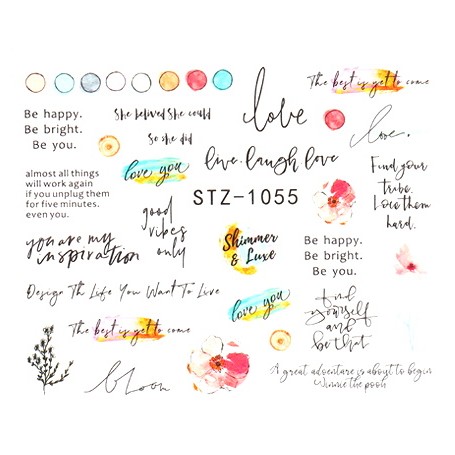 The best is yet to come
love
Be happy.
Be bright.
Be you.
She belived She could
So she did
love.
love you
live laugh love
almost all things
will work again
if you unplug them
for five minutes.
even you.
Find your
tribe.
Love them
hard.
STZ-1055
good
vibes
only
you are my
inspiration
Shimmer
& Luxe
Be happy.
Be bright.
Be you.
Design Th Life You Want To Live
love you
find
yourself
and
be that
The best is yet to come
bloom
A great adventure is about to begin
Winnie the pooh